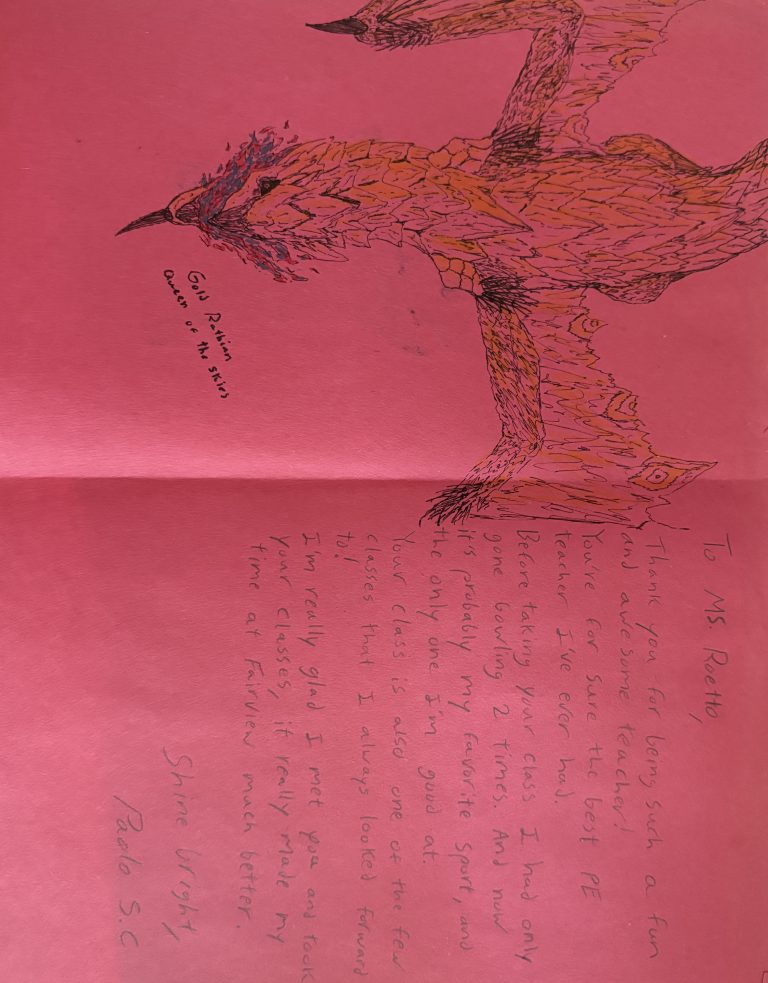 Gold Rathian
Queen of the skies
To Ms. Roetto,
Thank you for being such a fun
and awesome teacher!
You're for sure the best PE
teacher I've ever had.
Before taking your class I had only
gone bowling 2 times. And now
it's probably my favorite sport, and
the only one I'm good at.
Your class is also one of the few
classes that I always looked forward
to!
I'm really glad I met you and took
your classes, it really made my
time at Fairview much better.
Shine bright,
Paolo S.C.